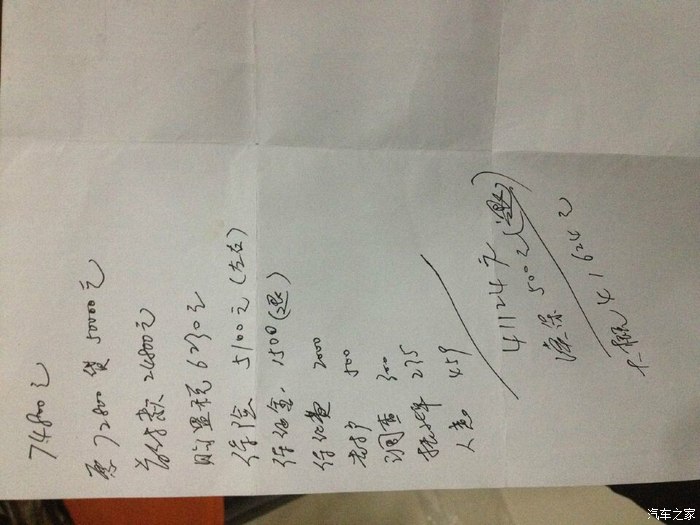 74800元
72800 贷 50000元
首付款 24800元
购置税 6230元
保险 5100元(左右)
保证金 1500(退)
保证费 2000
500
调查 300
抵押 235
人意 459
41124元
续保 500元(退)
大概 41624元
汽车之家